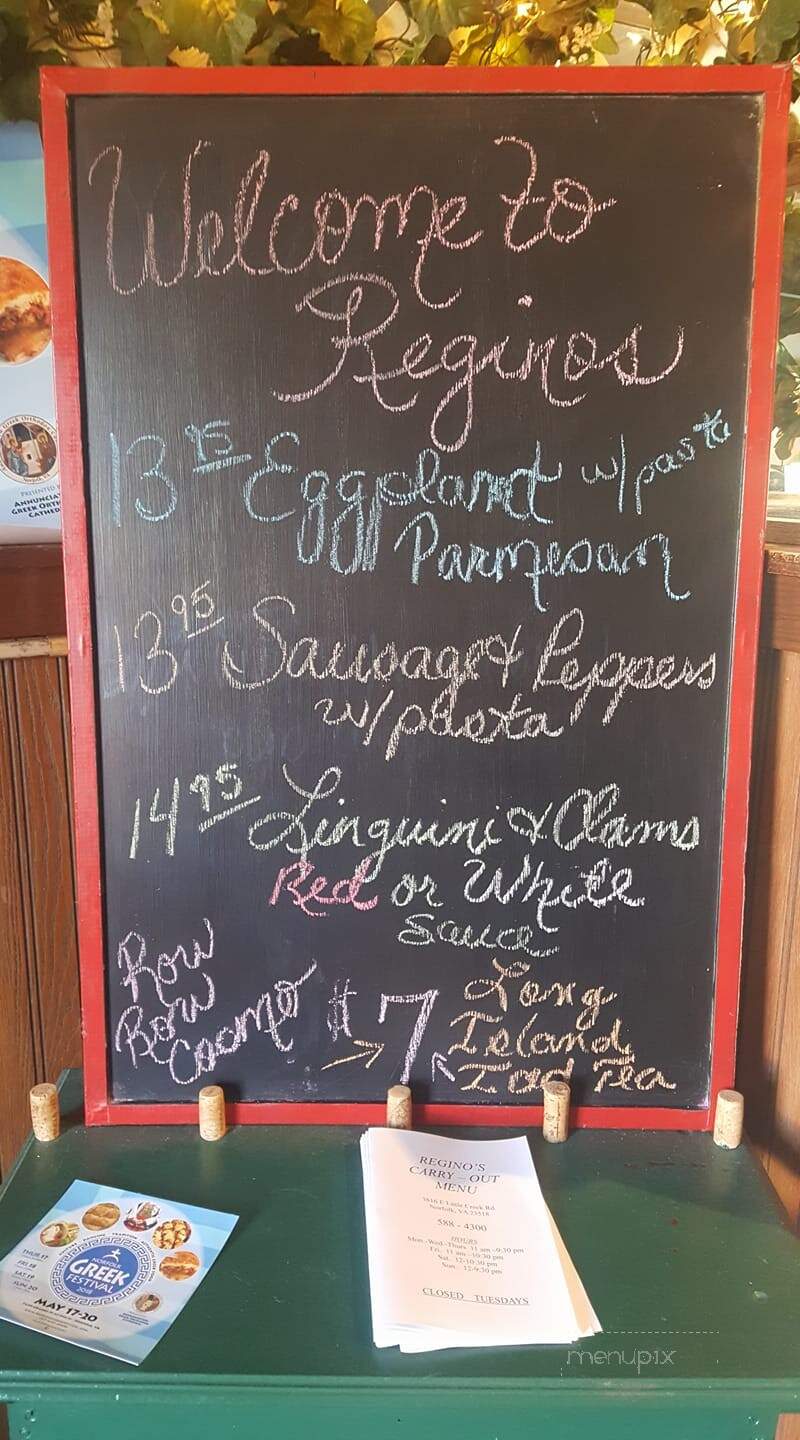 Welcome to
Reginos
13 95 Eggplant w/pasta
Parmesan
13 95 Sausage & Peppers
w/pasta
14 95 Linguini & Clams
Red or White
Sauce
Row
Bow
Coomo
$7
Long
Island
Iced Tea
PRESENTED BY
ANNUNCIAT
GREEK ORTH
CATHED
REGINO'S
CARRY - OUT
MENU
3816 E Little Creek Rd.
Norfolk, VA 23518
588 - 4300
HOURS
Mon.-Wed.-Thurs. 11 am -9:30 pm
Fri. 11 am -10:30 pm
Sat. 12-10:30 pm
Sun. 12-9:30 pm
CLOSED TUESDAYS
THUR 17
FRI 18
SAT 19
SUN 20
NORFOLK
GREEK
FESTIVAL
2018
MAY 17-20
menupix